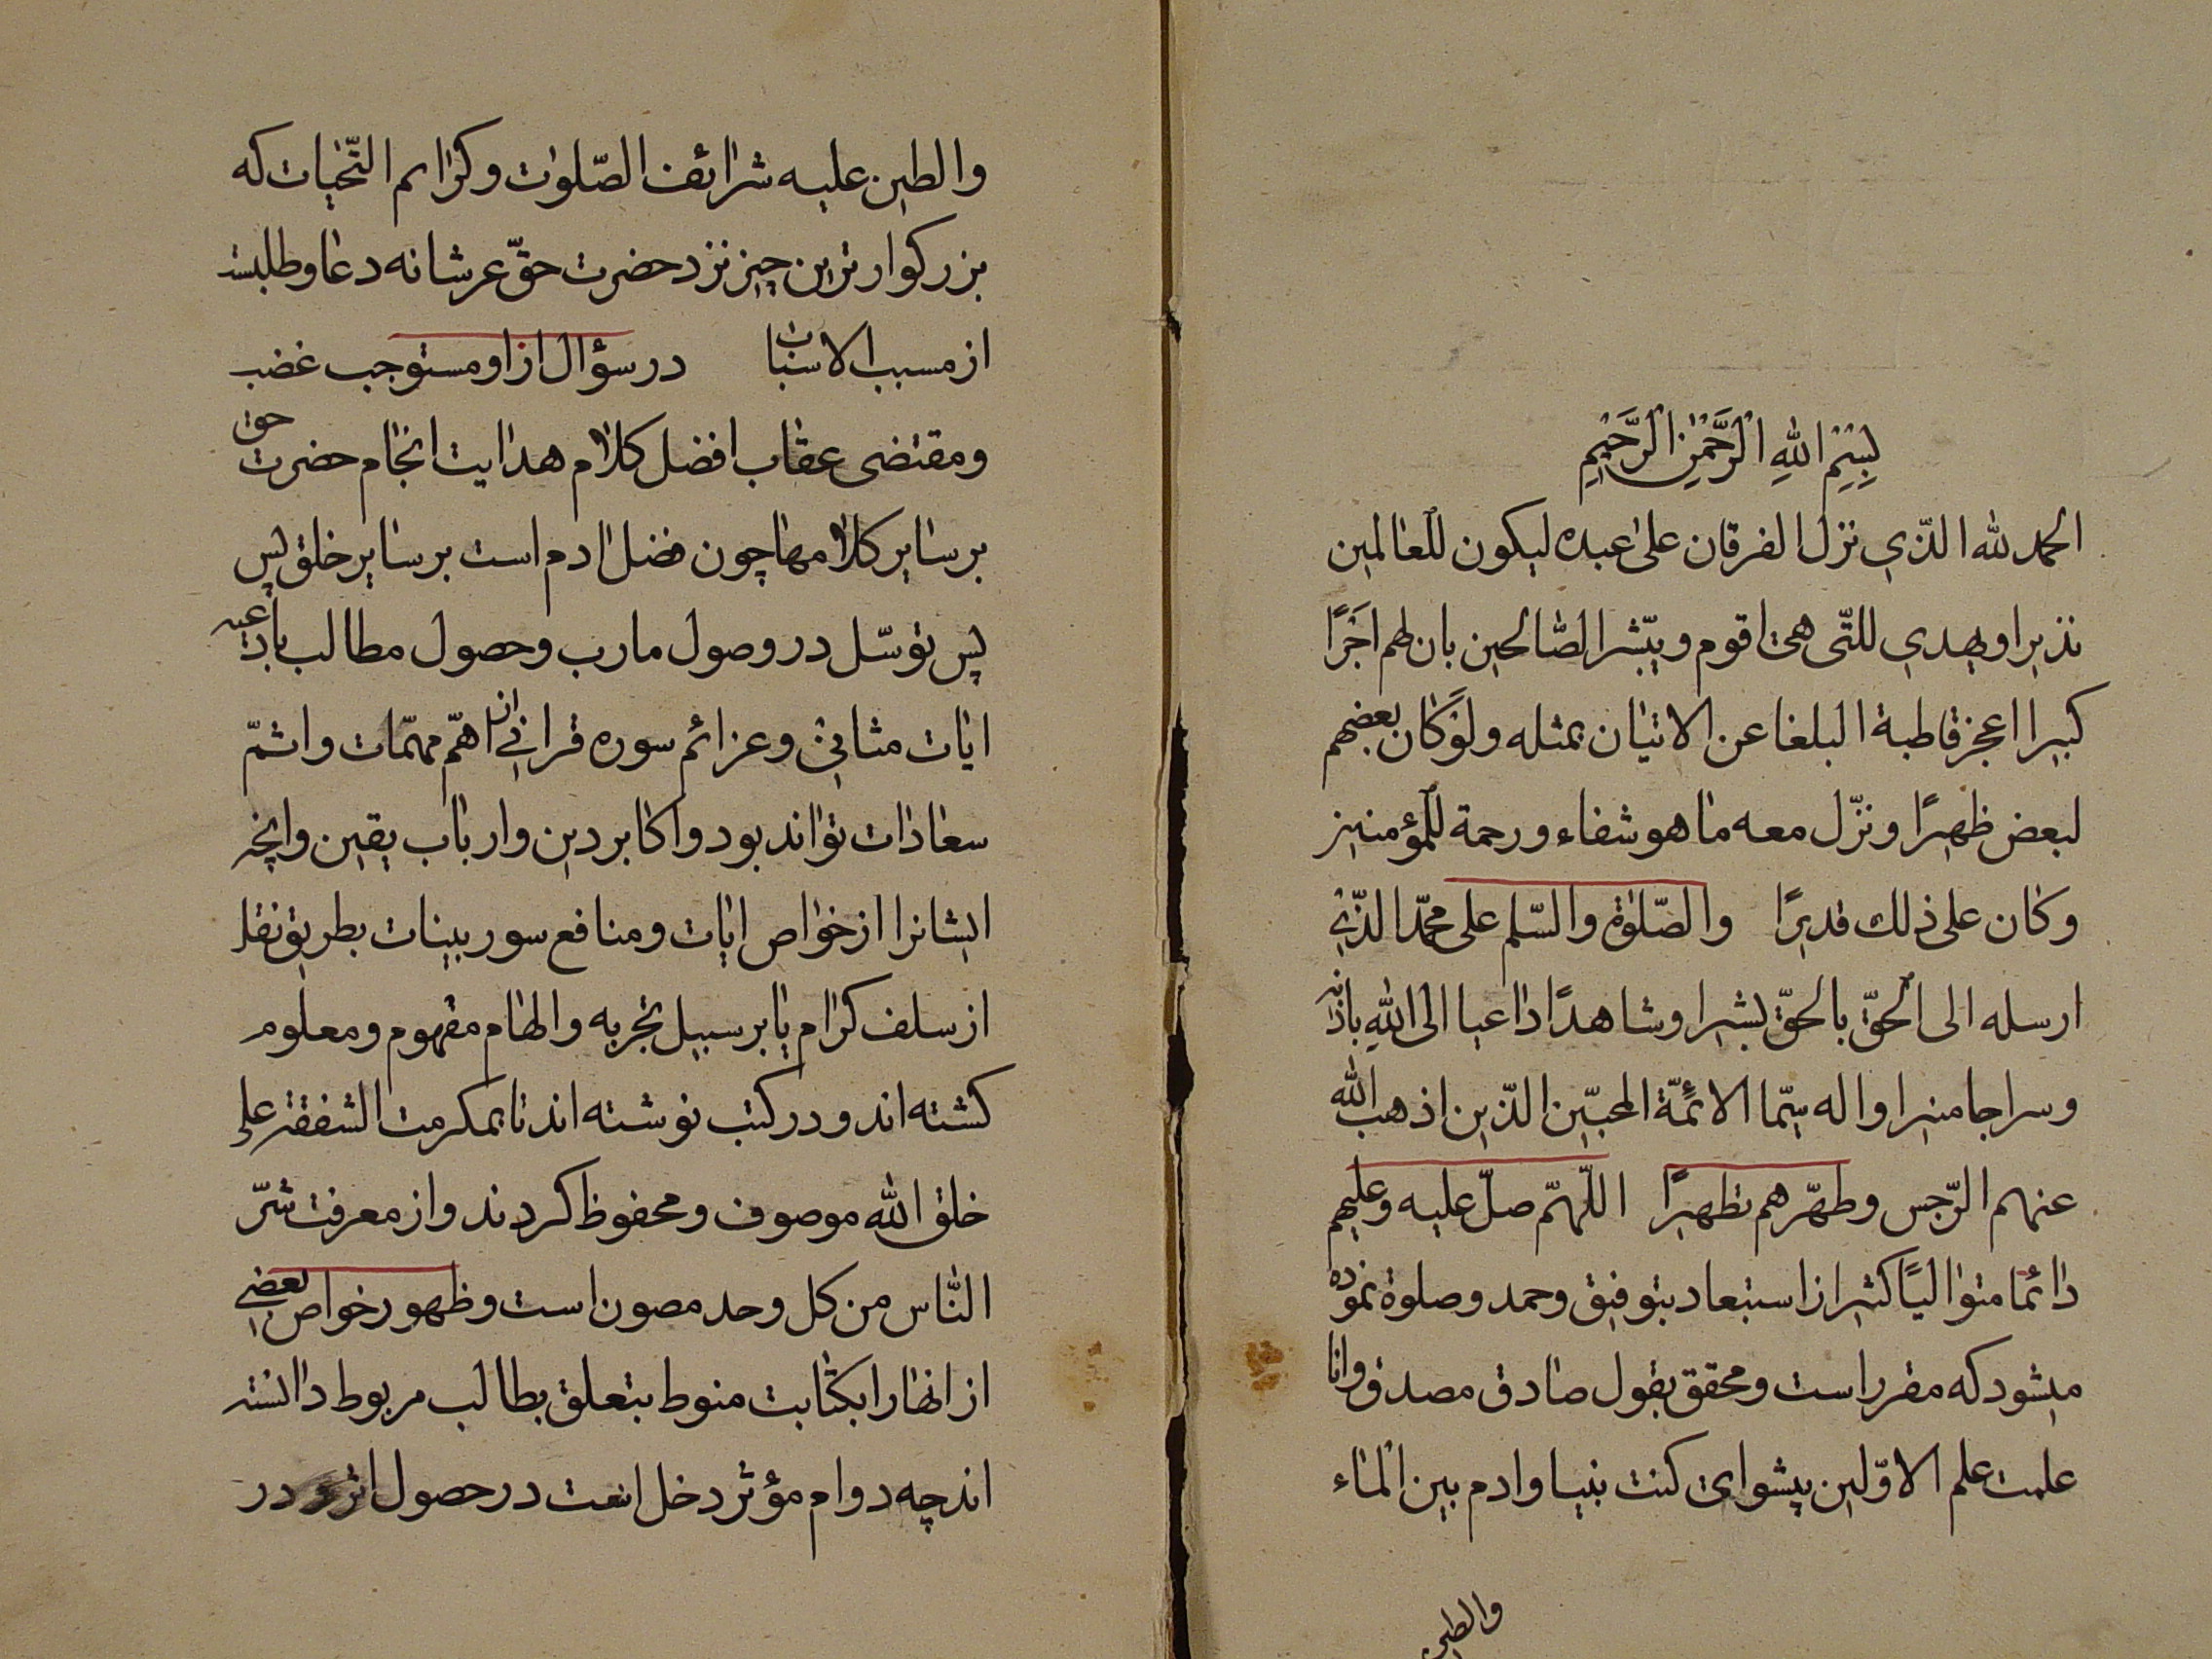 بِسْمِ اللهِ الرَّحْمٰنِ الرَّحِيْمِ
الحمد لله الذّي نزل الفرقان على عبده ليكون للعالمين
نذيرا ويهدي للتّى هى اقوم ويبّشر الصّالحين بان لهم اَجَرًا
كبيرا اعجز قاطبة البلغا عن الاتيان بمثله ولوَ كان بعضهم
لبعض ظهيرًا ونزّل معه ما هو شفاء ورحمة للمؤمنين
وكان على ذلك قديرًا والصّلوٰة والسّلم على محمّد الذّيْ
ارسله الى الحقّ بالحقّ بشيرا وشاهدًا داعيا الى اللهِ باذنه
وسراجا منيرا واله سيّما الائمّة المحبّين الذّين اذهب الله
عنهم الرّجس وطهّرهم تطهيرًا اللّهمّ صلّ عليه وعليهم
دائما متوٰاليًا كثيرا از استبعاد بتوفيق وحمد وصلوة نموده
ميشود كه مقرر است ومحقق بقول صادق مصدق وانا
علمت علم الاوّلين پيشواى كنت بنيا وادم بين المٰاء
والطين
والطين عليه شرائف الصّلوٰت وكرٰايم التّحيات كه
بزركوارترين چيز نزد حضرت حقّ عرشانه دعا وطلبست
از مسبب الاسبٰاب در سؤال از او مستوجب غضب
ومقتضى عقٰاب افضل كلام هدايت انجٰام حضرت حق
بر سٰاير كلامها چون فضل ادم است بر سٰاير خلق پس
پس توسّل در وصول مارب وحصول مطالب بادعيه
ايٰات مثانى وعزائم سوره قرانى ان اهمّ مهمّات واتمّ
سعادات تواند بود واكابر دين وارباب يقين وانچه
ايشانرا از خوٰاص ايٰات ومنافع سور بينات بطريق نقل
از سلف كرٰام يٰا بر سبيل تجربه والهام مفهوم ومعلوم
كشته اند ودر كتب نوشته اند تا بمكرمت الشفقة على
خلق الله موصوف ومحفوظ كردند واز معرفت شرّ
النّاس من كل وحد مصون است وظهور خواص بعضى
از انهٰا را بكتٰابت منوط بتعلق بطالب مربوط دانسته
اند چه دوام مؤثر دخل است در حصول اثر در